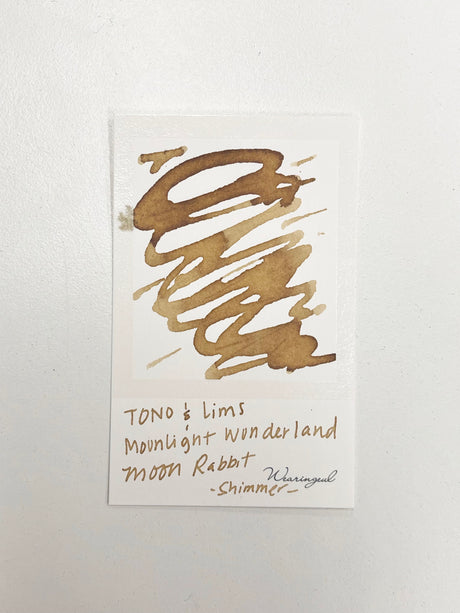 TONO & Lims
Moonlight Wonderland
Moon Rabbit
Wearingeul
-Shimmer-